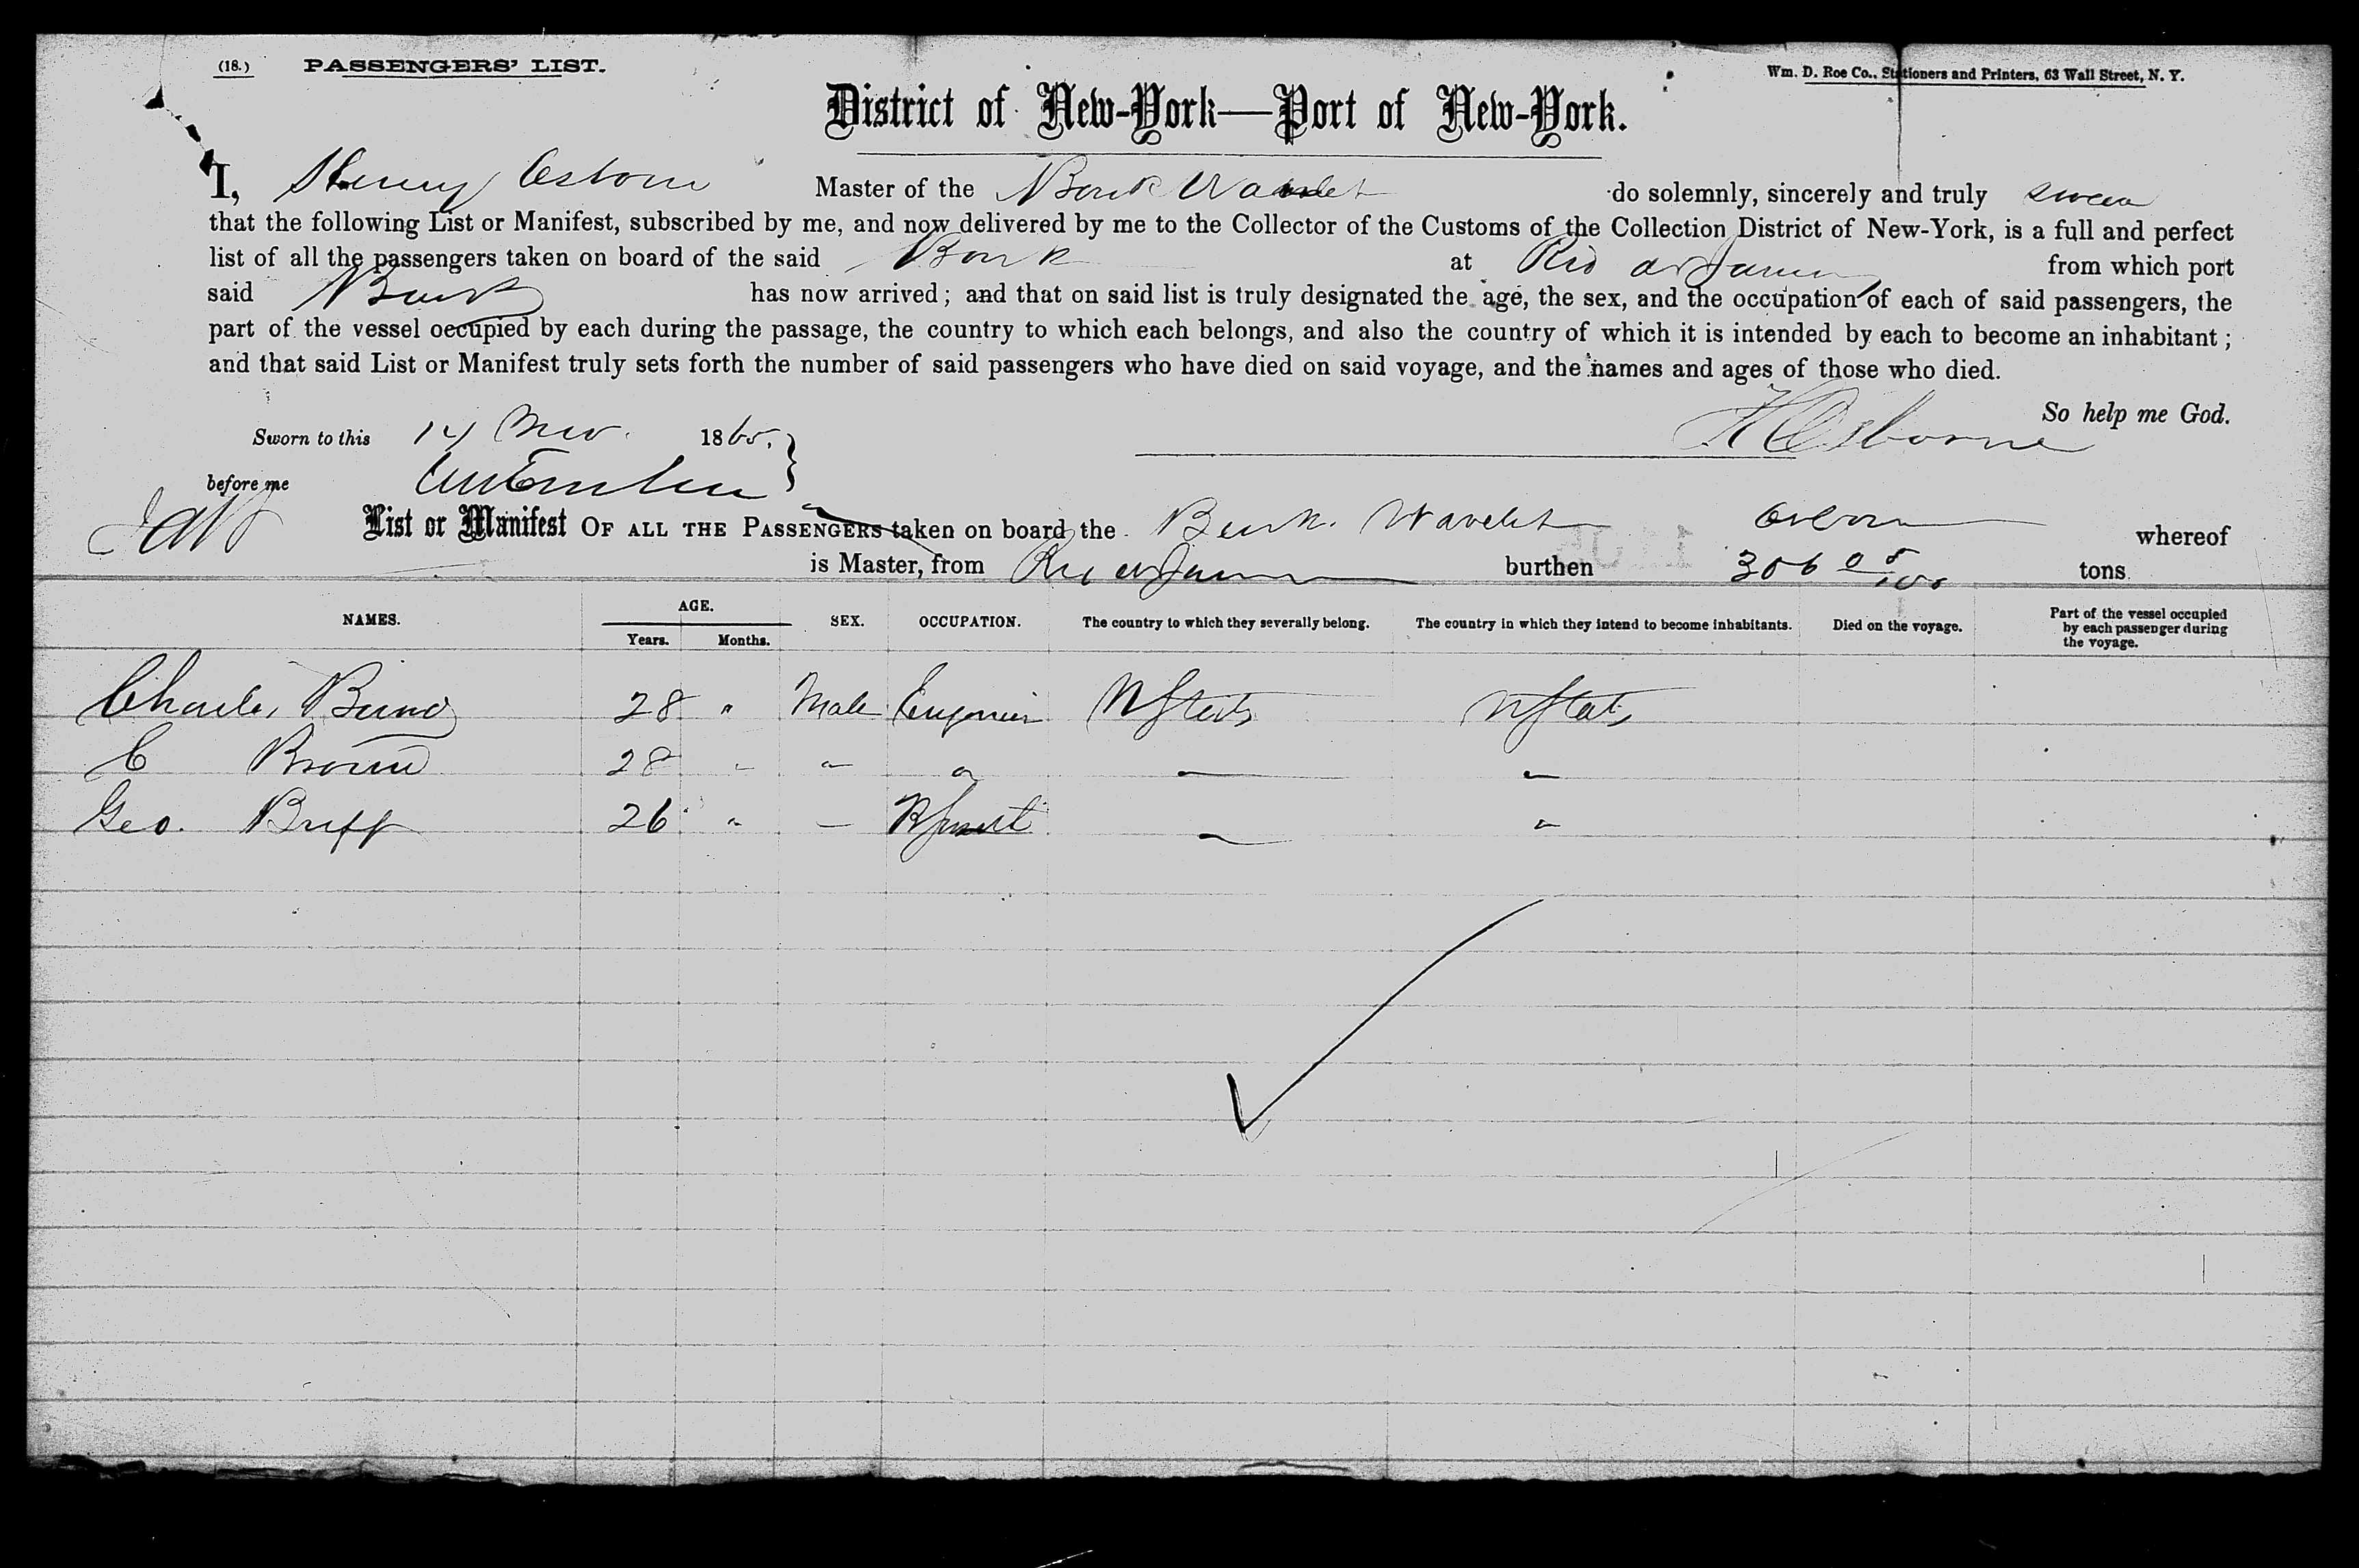 (18.) PASSENGERS' LIST.
Wm. D. Roe Co., Stationers and Printers, 63 Wall Street, N. Y.
District of New-York—Port of New-York.
I, Henry Osborn Master of the Bark Wavelet do solemnly, sincerely and truly swear
that the following List or Manifest, subscribed by me, and now delivered by me to the Collector of the Customs of the Collection District of New-York, is a full and perfect
list of all the passengers taken on board of the said Bark at Rio de Janeiro from which port
said Bark has now arrived; and that on said list is truly designated the age, the sex, and the occupation of each of said passengers, the
part of the vessel occupied by each during the passage, the country to which each belongs, and also the country of which it is intended by each to become an inhabitant;
and that said List or Manifest truly sets forth the number of said passengers who have died on said voyage, and the names and ages of those who died.
So help me God.
Sworn to this 14 Nov. 1865. H Osborne
before me
List or Manifest OF ALL THE PASSENGERS taken on board the Bark Wavelet Osborn whereof
is Master, from Rio de Janeiro burthen 306 08/100 tons
NAMES. AGE. SEX. OCCUPATION. The country to which they severally belong. The country in which they intend to become inhabitants. Died on the voyage. Part of the vessel occupied by each passenger during the voyage.
Years. Months.
Charles 28 " Male Engineer U States U States
C Brown 28 " " "
Geo. Buff 26 " "